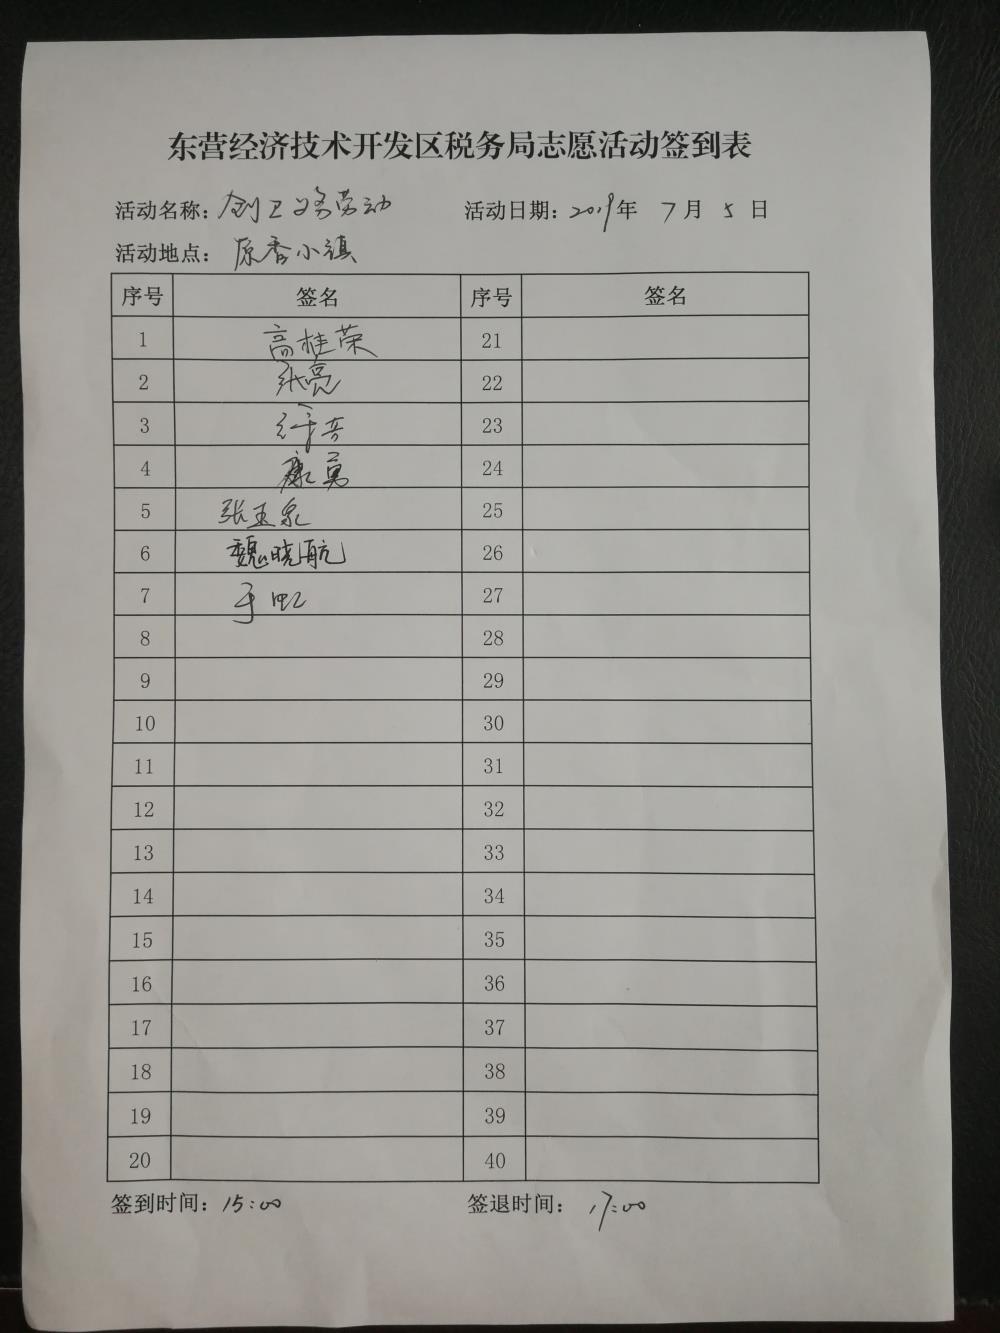 东营经济技术开发区税务局志愿活动签到表
活动名称：创卫义务劳动 活动日期：2019年 7月 5日
活动地点：原香小镇
序号 签名 序号 签名
1 高桂荣 21
2 张亮 22
3 23
4 康勇 24
5 张玉泉 25
6 魏晓航 26
7 于虹 27
8 28
9 29
10 30
11 31
12 32
13 33
14 34
15 35
16 36
17 37
18 38
19 39
20 40
签到时间：15:00 签退时间：17:00